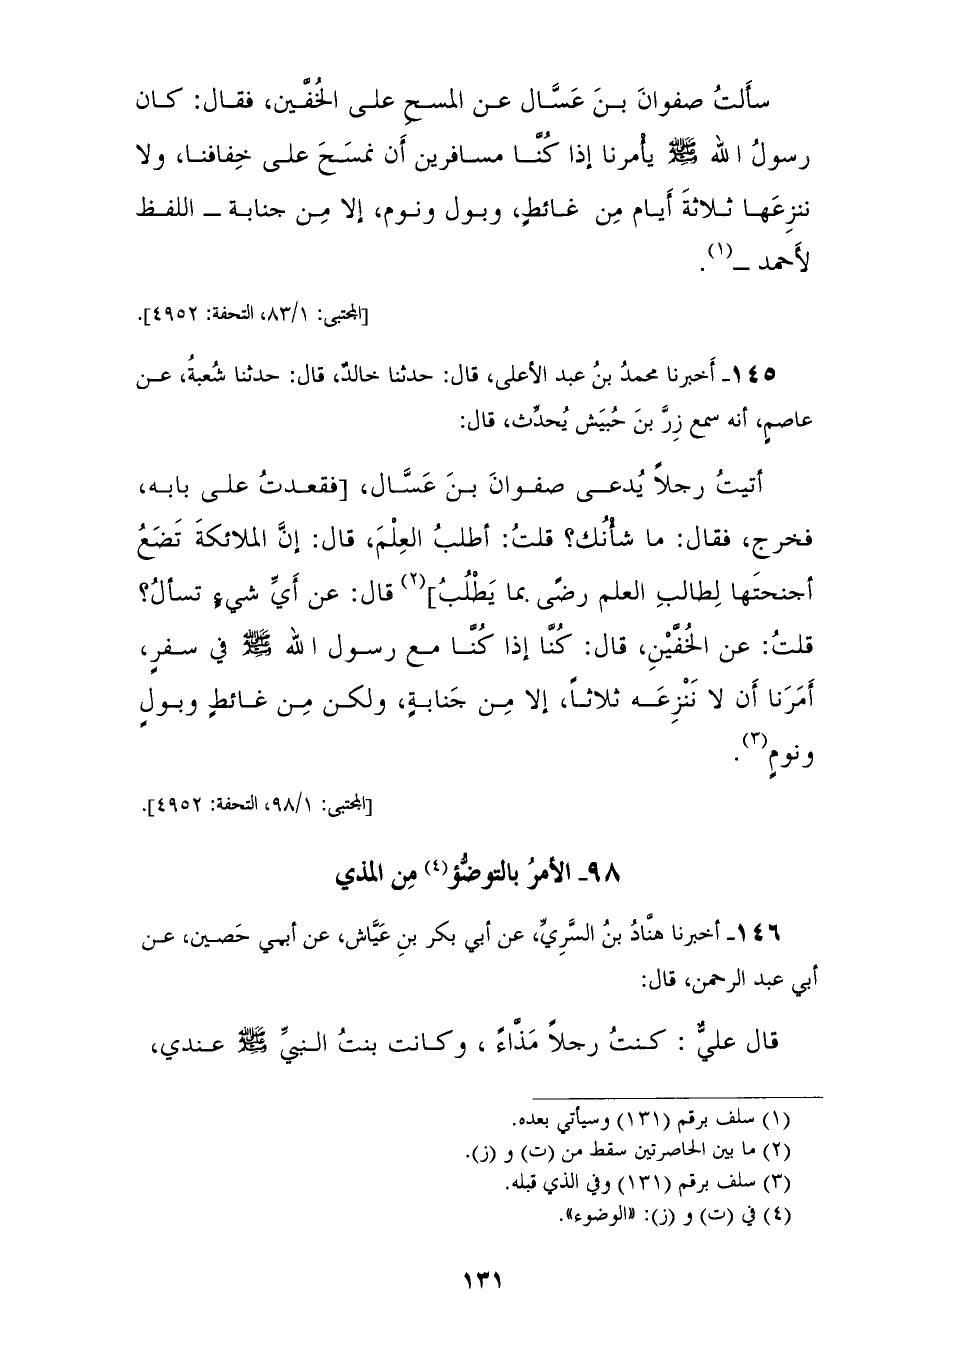 سأَلتُ صفوانَ بنَ عَسَّال عن المسحِ على الخُفَّين، فقال: كان
رسولُ الله ﷺ يأْمرنا إذا كُنَّا مسافرين أَن نمسَحَ على خِفافنا، ولا
ننزِعَها ثلاثةَ أَيام مِن غائطٍ، وبول ونوم، إلا مِن جنابة – اللفظ
لأَحمد –(١).
[المجتبى: ٨٣/١، التحفة: ٤٩٥٢].
١٤٥- أَخبرنا محمدُ بنُ عبد الأعلى، قال: حدثنا خالدٌ، قال: حدثنا شُعبةُ، عن
عاصمٍ، أنه سمع زِرَّ بنَ حُبَيَش يُحدِّث، قال:
أتيتُ رجلاً يُدعى صفوانَ بنَ عَسَّال، [فقعدتُ على بابه،
فخرج، فقال: ما شأْنُك؟ قلتُ: أطلبُ العِلْمَ، قال: إنَّ الملائكةَ تَضَعُ
أجنحتَها لِطالبِ العلم رضًى بما يَطْلُبُ](٢) قال: عن أَيِّ شيءٍ تسألُ؟
قلتُ: عن الخُفَّيْنِ، قال: كُنَّا إذا كُنَّا مع رسول الله ﷺ في سفرٍ،
أَمَرَنا أَن لا نَنْزِعَه ثلاثاً، إلا مِن جَنابةٍ، ولكن مِن غائطٍ وبولٍ
ونومٍ(٣).
[المجتبى: ٩٨/١، التحفة: ٤٩٥٢].
٩٨- الأمرُ بالتوضُّؤ(٤) مِن المذي
١٤٦- أخبرنا هنَّادُ بنُ السَّرِيِّ، عن أبي بكر بنِ عَيَّاش، عن أبي حَصين، عن
أبي عبد الرحمن، قال:
قال عليٌّ : كنتُ رجلاً مَذَّاءً ، وكانت بنتُ النبيِّ ﷺ عندي،
(١) سلف برقم (١٣١) وسيأتي بعده.
(٢) ما بين الحاصرتين سقط من (ت) و (ز).
(٣) سلف برقم (١٣١) وفي الذي قبله.
(٤) في (ت) و (ز): «الوضوء».
١٣١